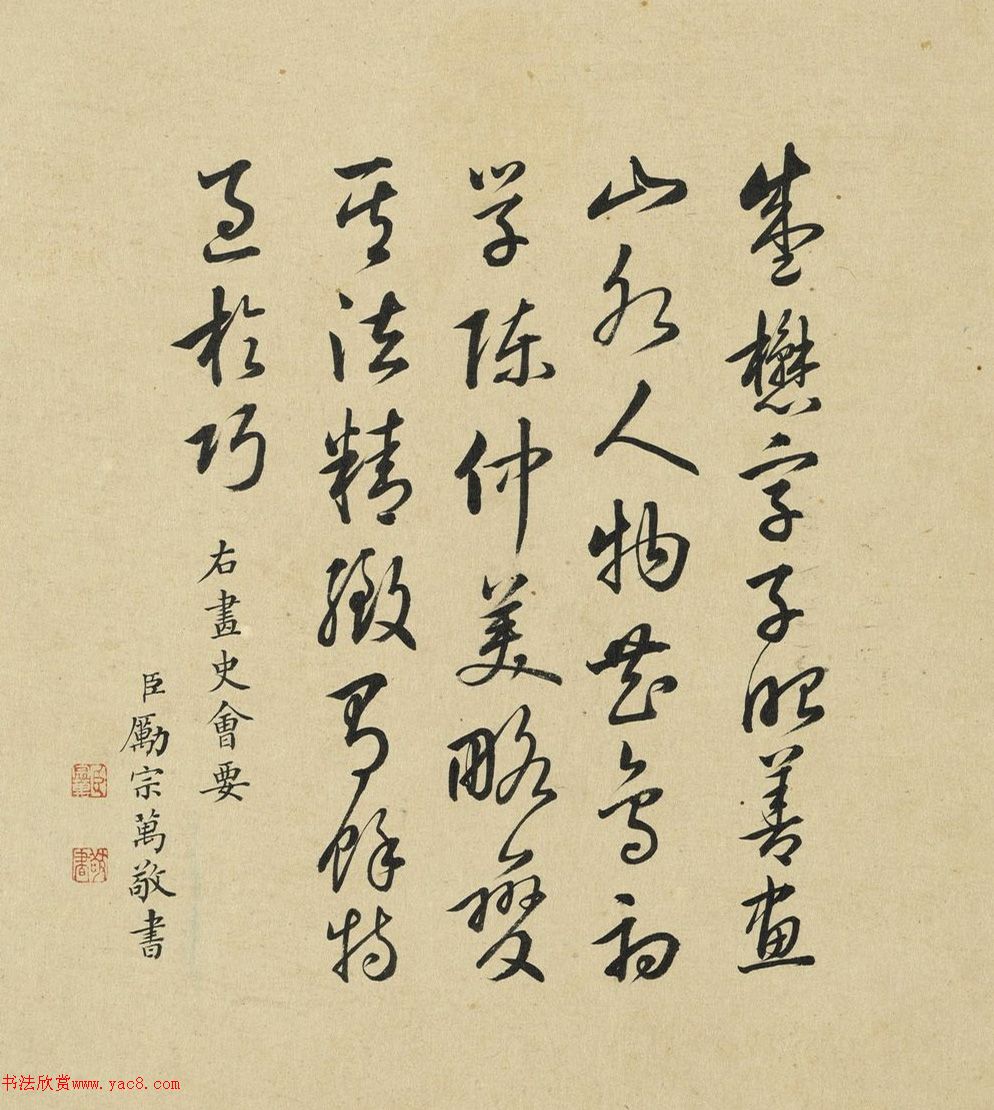 盛懋字子昭善畫
山水人物花鳥初
學陳仲美略變
其法精緻有餘特
過於巧
右畫史會要
臣勵宗萬敬書
书法欣赏www.yac8.com